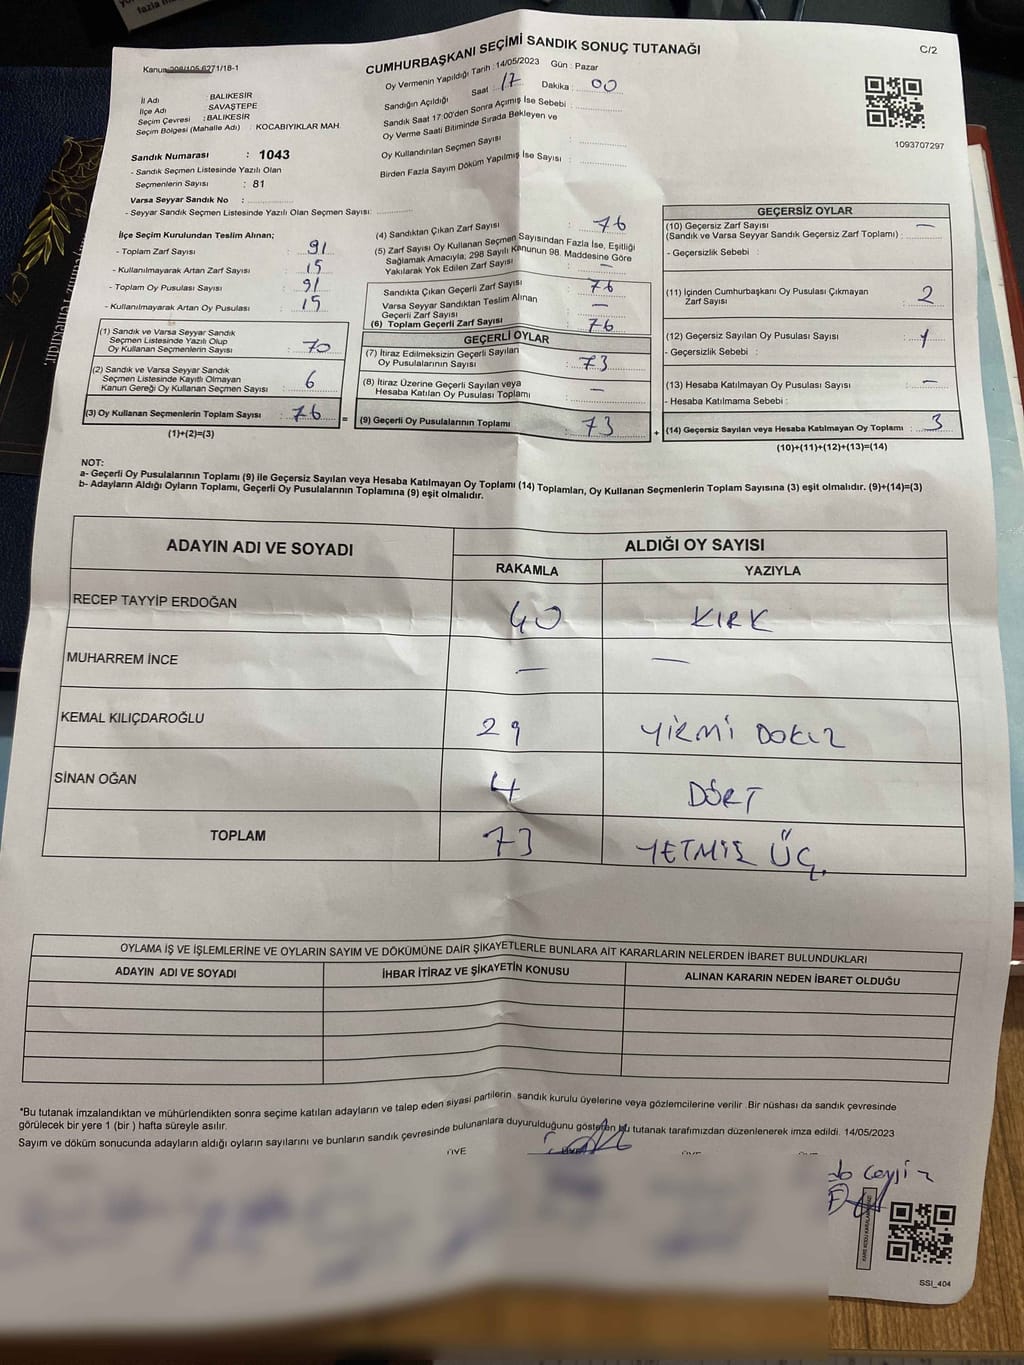 fazla
CUMHURBAŞKANI SEÇİMİ SANDIK SONUÇ TUTANAĞI
C/2
Oy Vermenin Yapıldığı Tarih : 14/05/2023 Gün : Pazar
Sandığın Açıldığı Saat : 17 Dakika : 00
Sandık Saat 17.00'den Sonra Açımış İse Sebebi :
Oy Verme Saati Bitiminde Sırada Bekleyen ve
Oy Kullandırılan Seçmen Sayısı :
Birden Fazla Sayım Döküm Yapılmış İse Sayısı :
İl Adı : BALIKESİR
İlçe Adı : SAVAŞTEPE
Seçim Çevresi : BALIKESİR
Seçim Bölgesi (Mahalle Adı) : KOCABIYIKLAR MAH.
1093707297
Sandık Numarası : 1043
- Sandık Seçmen Listesinde Yazılı Olan
Seçmenlerin Sayısı : 81
Varsa Seyyar Sandık No :
- Seyyar Sandık Seçmen Listesinde Yazılı Olan Seçmen Sayısı:
İlçe Seçim Kurulundan Teslim Alınan;
- Toplam Zarf Sayısı : 91
- Kullanılmayarak Artan Zarf Sayısı : 15
- Toplam Oy Pusulası Sayısı : 91
- Kullanılmayarak Artan Oy Pusulası : 15
(1) Sandık ve Varsa Seyyar Sandık
Seçmen Listesinde Yazılı Olup
Oy Kullanan Seçmenlerin Sayısı : 70
(2) Sandık ve Varsa Seyyar Sandık
Seçmen Listesinde Kayıtlı Olmayan
Kanun Gereği Oy Kullanan Seçmen Sayısı : 6
(3) Oy Kullanan Seçmenlerin Toplam Sayısı : 76 =
(1)+(2)=(3)
(4) Sandıktan Çıkan Zarf Sayısı : 76
(5) Zarf Sayısı Oy Kullanan Seçmen Sayısından Fazla İse, Eşitliği
Sağlamak Amacıyla; 298 Sayılı Kanunun 98. Maddesine Göre
Yakılarak Yok Edilen Zarf Sayısı : —
Sandıkta Çıkan Geçerli Zarf Sayısı : 76
Varsa Seyyar Sandıktan Teslim Alınan
Geçerli Zarf Sayısı : —
(6) Toplam Geçerli Zarf Sayısı : 76
GEÇERLİ OYLAR
(7) İtiraz Edilmeksizin Geçerli Sayılan
Oy Pusulalarının Sayısı : 73
(8) İtiraz Üzerine Geçerli Sayılan veya
Hesaba Katılan Oy Pusulası Toplamı : —
(9) Geçerli Oy Pusulalarının Toplamı : 73 +
GEÇERSİZ OYLAR
(10) Geçersiz Zarf Sayısı
(Sandık ve Varsa Seyyar Sandık Geçersiz Zarf Toplamı) : —
- Geçersizlik Sebebi :
(11) İçinden Cumhurbaşkanı Oy Pusulası Çıkmayan
Zarf Sayısı : 2
(12) Geçersiz Sayılan Oy Pusulası Sayısı : 1
- Geçersizlik Sebebi :
(13) Hesaba Katılmayan Oy Pusulası Sayısı : —
- Hesaba Katılmama Sebebi :
(14) Geçersiz Sayılan veya Hesaba Katılmayan Oy Toplamı : 3
(10)+(11)+(12)+(13)=(14)
NOT:
a- Geçerli Oy Pusulalarının Toplamı (9) ile Geçersiz Sayılan veya Hesaba Katılmayan Oy Toplamı (14) Toplamları, Oy Kullanan Seçmenlerin Toplam Sayısına (3) eşit olmalıdır. (9)+(14)=(3)
b- Adayların Aldığı Oyların Toplamı, Geçerli Oy Pusulalarının Toplamına (9) eşit olmalıdır.
ADAYIN ADI VE SOYADI ALDIĞI OY SAYISI
RAKAMLA YAZIYLA
RECEP TAYYİP ERDOĞAN 40 KIRK
MUHARREM İNCE — —
KEMAL KILIÇDAROĞLU 29 YİRMİ DOKUZ
SİNAN OĞAN 4 DÖRT
TOPLAM 73 YETMİŞ ÜÇ.
OYLAMA İŞ VE İŞLEMLERİNE VE OYLARIN SAYIM VE DÖKÜMÜNE DAİR ŞİKAYETLERLE BUNLARA AİT KARARLARIN NELERDEN İBARET BULUNDUKLARI
ADAYIN ADI VE SOYADI İHBAR İTİRAZ VE ŞİKAYETİN KONUSU ALINAN KARARIN NEDEN İBARET OLDUĞU
*Bu tutanak imzalandıktan ve mühürlendikten sonra seçime katılan adayların ve talep eden siyasi partilerin sandık kurulu üyelerine veya gözlemcilerine verilir .Bir nüshası da sandık çevresinde
görülecek bir yere 1 (bir ) hafta süreyle asılır.
Sayım ve döküm sonucunda adayların aldığı oyların sayılarını ve bunların sandık çevresinde bulunanlara duyurulduğunu gösteren bu tutanak tarafımızdan düzenlenerek imza edildi. 14/05/2023
ÜYE
SSI_404